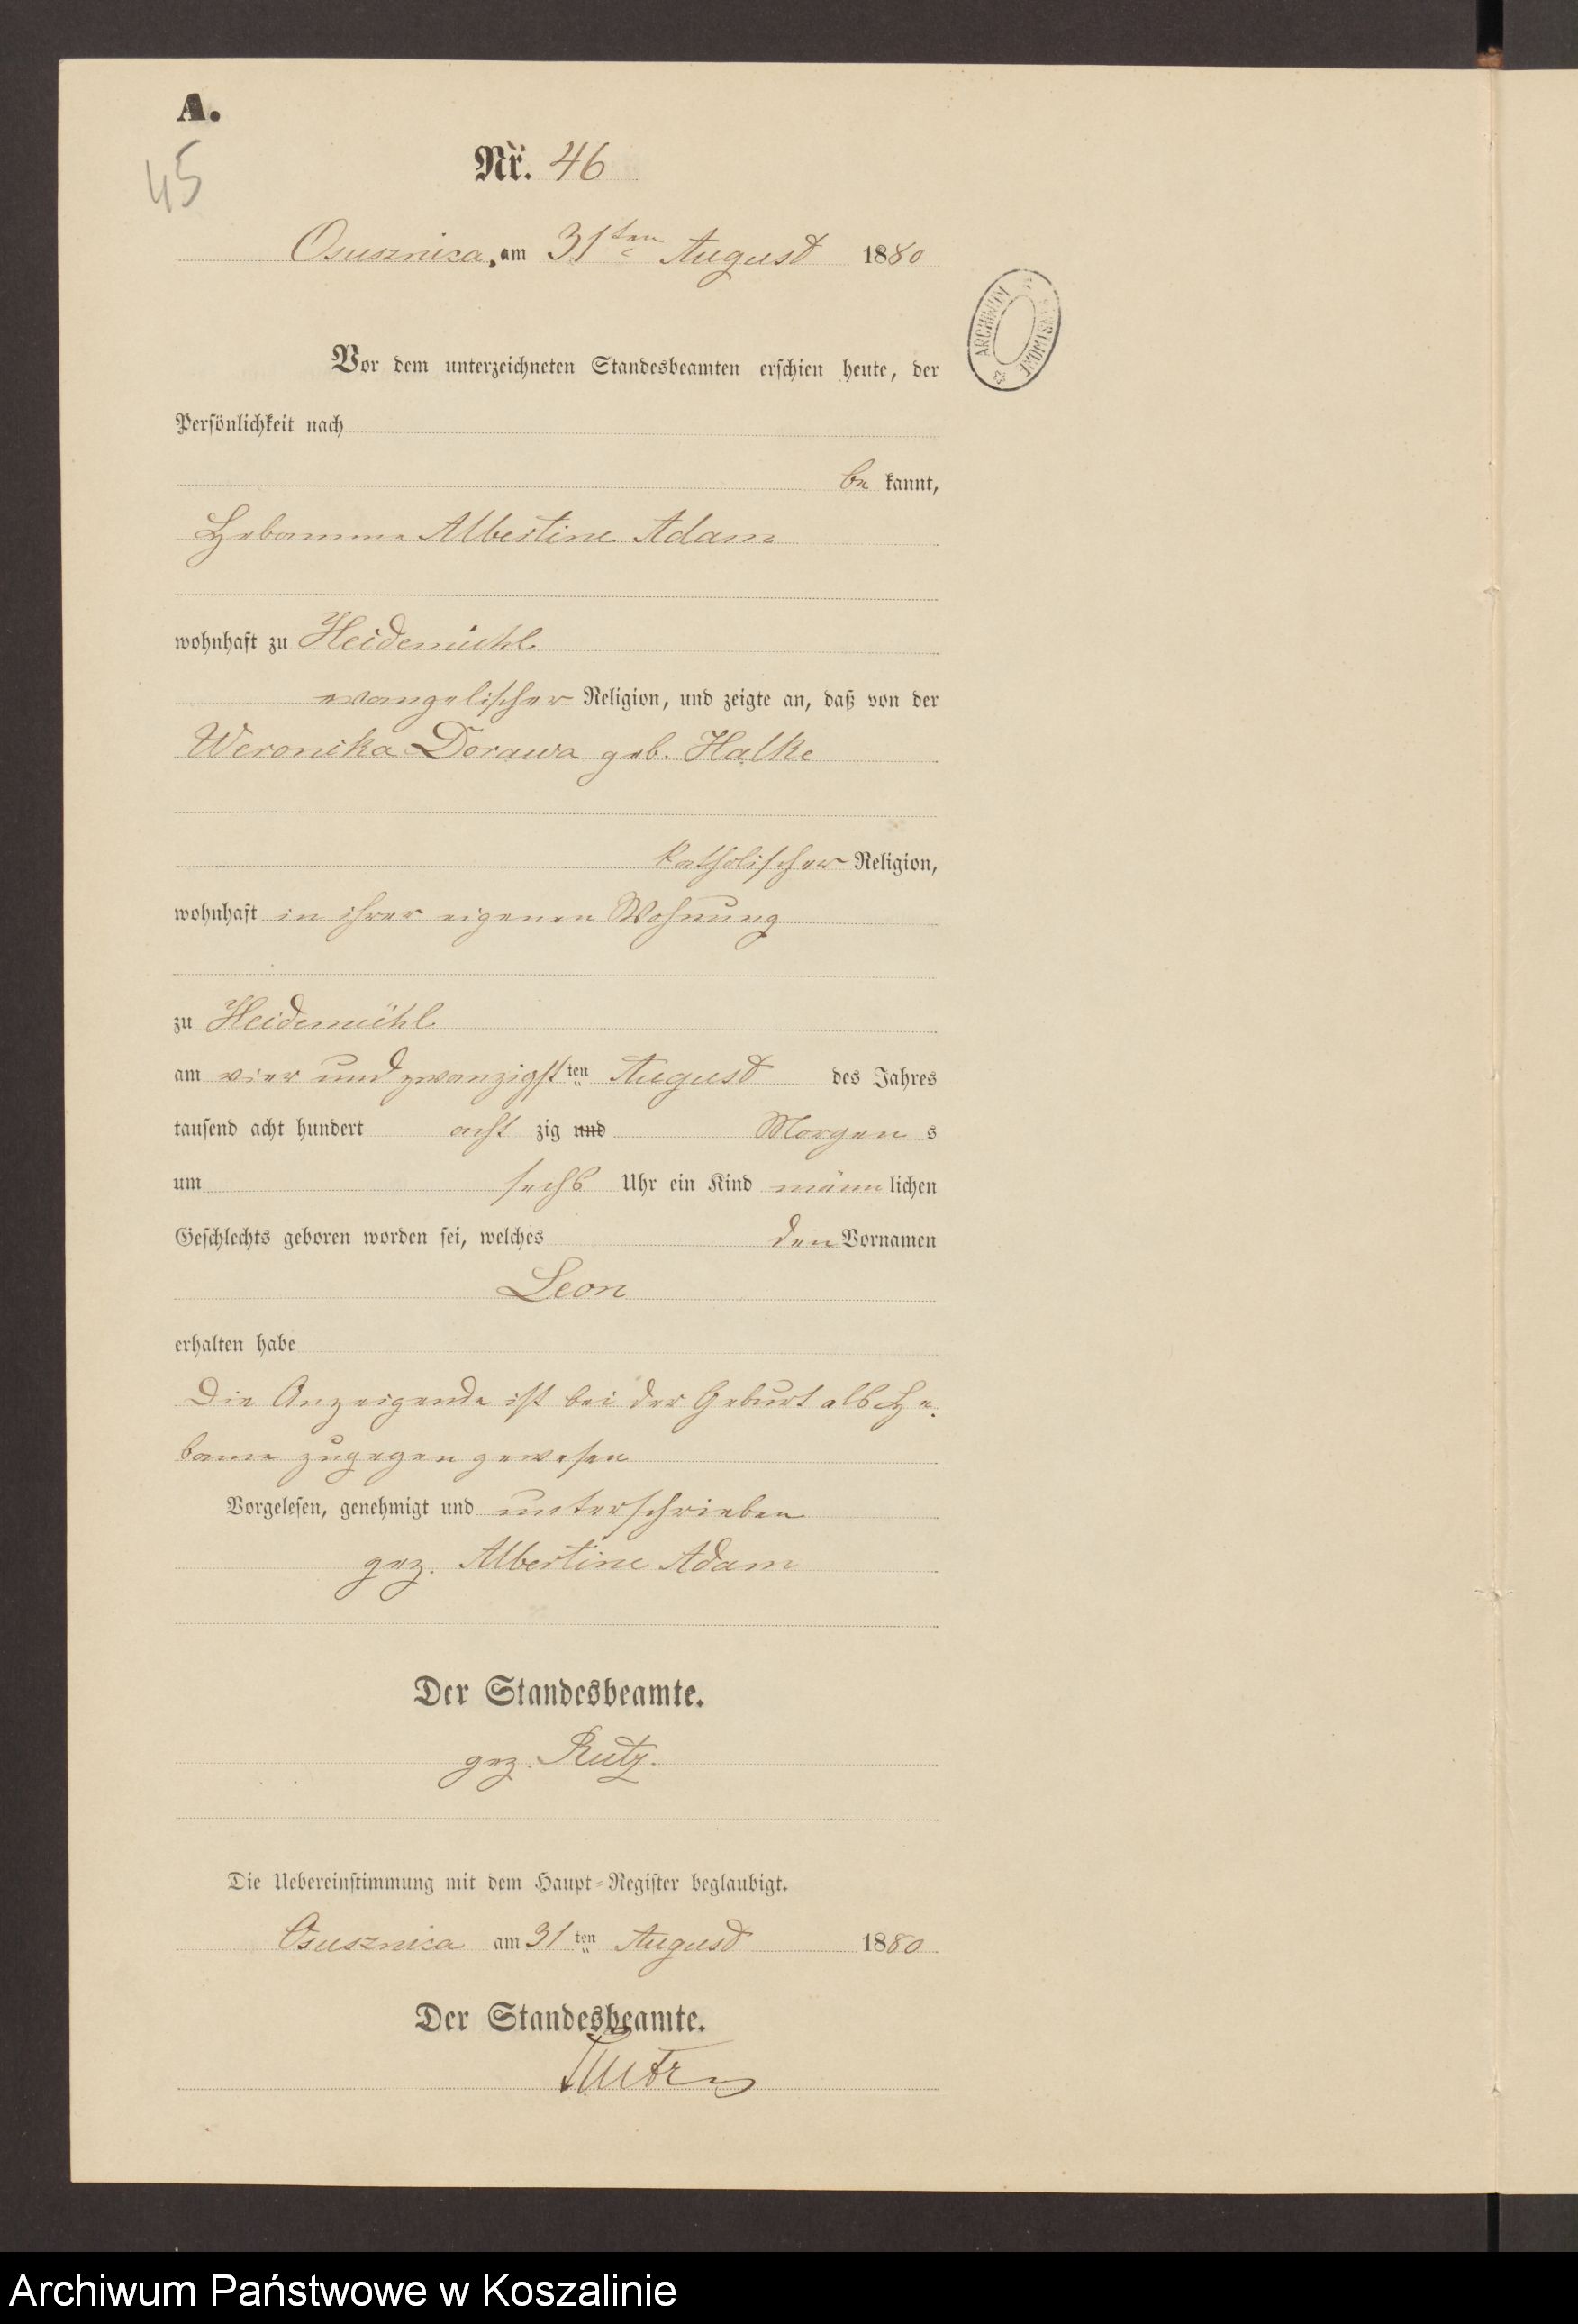 A.
45
Nr. 46
Osusznica, am 31ten August 1880
ARCHIWUM PAŃSTWOWE
Vor dem unterzeichneten Standesbeamten erschien heute, der
Persönlichkeit nach
be kannt,
Hebamme Albertine Adam
wohnhaft zu Heidemühl
evangelischer Religion, und zeigte an, daß von der
Weronika Dorawa geb. Halke
katholischer Religion,
wohnhaft in ihrer eigenen Wohnung
zu Heidemühl
am vier und zwanzigst ten August des Jahres
tausend acht hundert acht zig und Morgen s
um sechs Uhr ein Kind männ lichen
Geschlechts geboren worden sei, welches den Vornamen
Leon
erhalten habe
Die Anzeigende ist bei der Geburt als He-
bamme zugegen gewesen
Vorgelesen, genehmigt und unterschrieben
gez. Albertine Adam
Der Standesbeamte.
gez. Rutz.
Die Uebereinstimmung mit dem Haupt-Register beglaubigt.
Osusznica am 31 ten August 1880
Der Standesbeamte.
Rutz
Archiwum Państwowe w Koszalinie